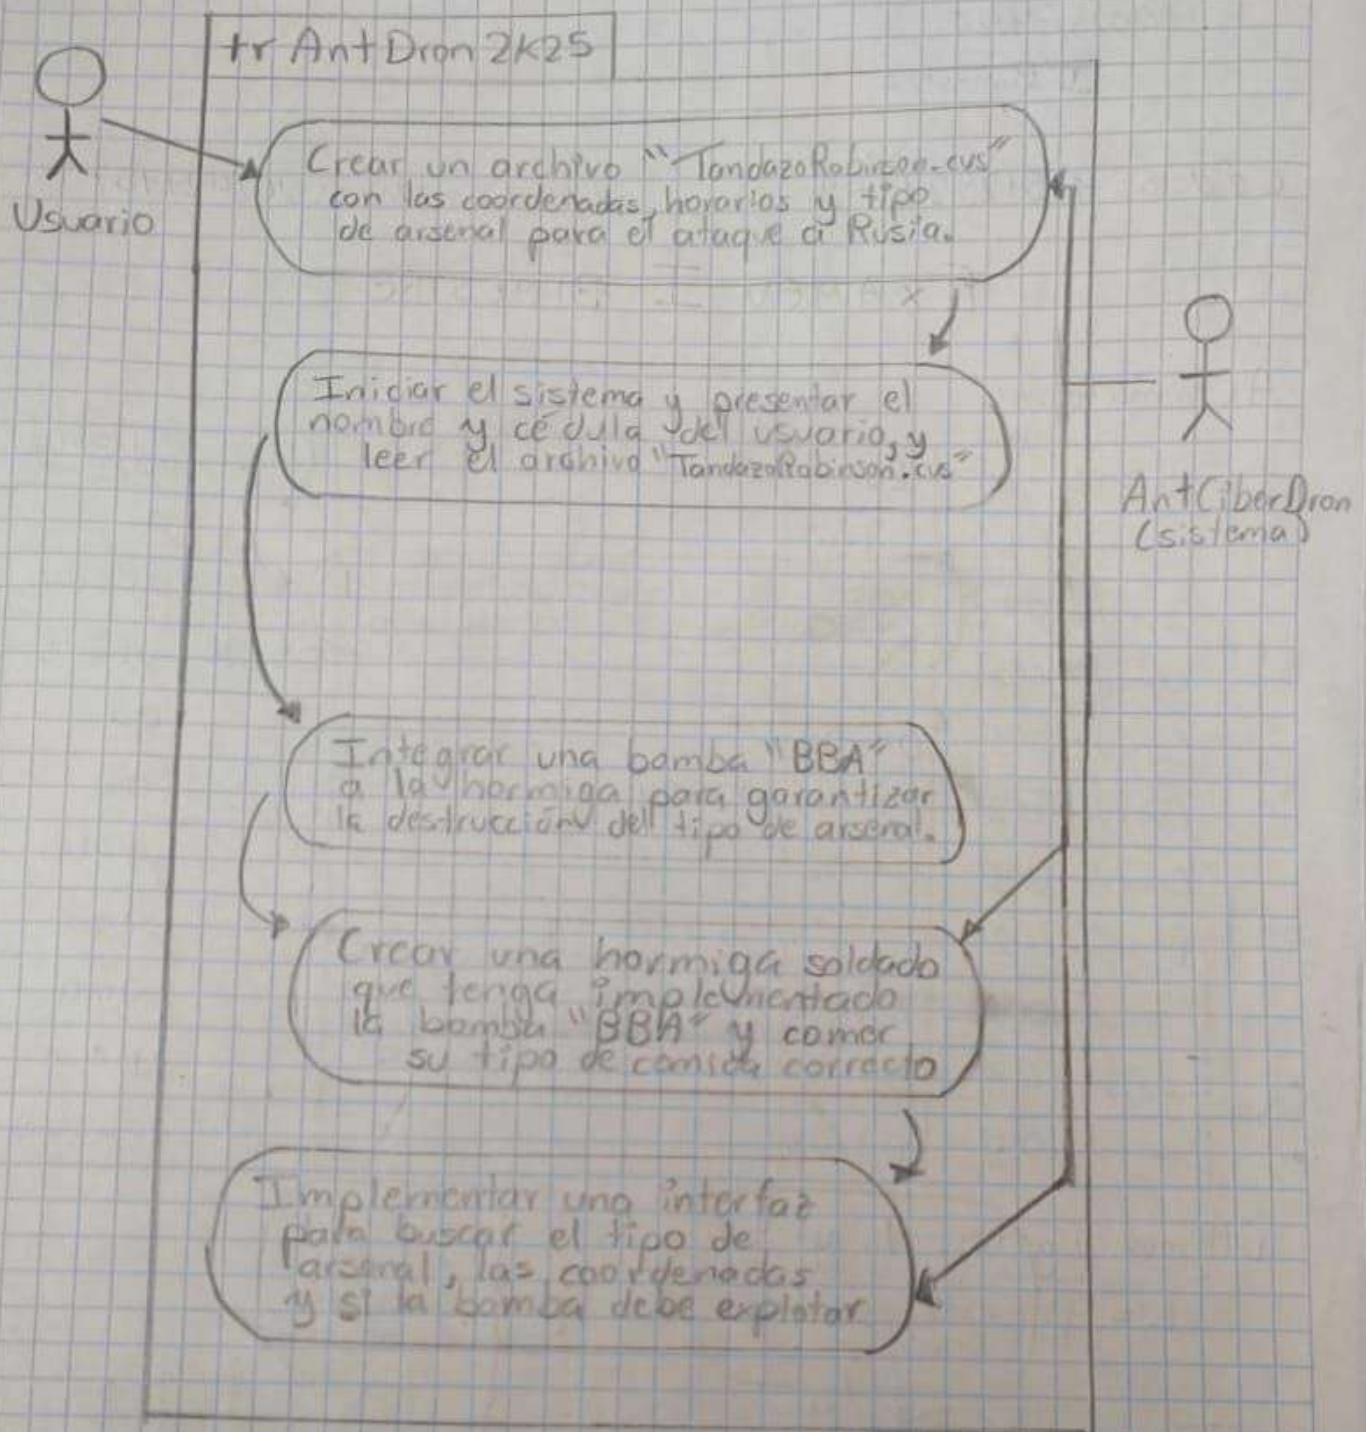 tr AntDron 2K25
Usuario
Crear un archivo "TandazoRobinson.cvs"
con las coordenadas, horarios y tipo
de arsenal para el ataque a Rusia.
Iniciar el sistema y presentar el
nombre y cédula del usuario, y
leer el archivo "TandazoRobinson.cvs"
AntCiberDron
(sistema)
Integrar una bomba "BBA"
a la hormiga para garantizar
la destrucción del tipo de arsenal.
Crear una hormiga soldado
que tenga implementado
la bomba "BBA" y comer
su tipo de comida correcto
Implementar una interfaz
para buscar el tipo de
arsenal, las coordenadas
y si la bomba debe explotar